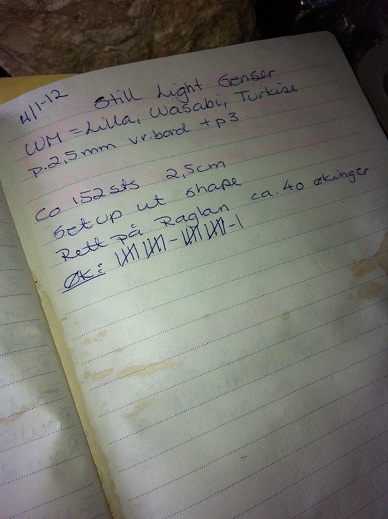 4/1-12 Still Light Genser
WM = Lilla, Wasabi, Turkise
p. 2,5mm vr.bord + p3
CO 152 sts 2,5cm
Set up ut shape
Rett på Raglan ca. 40 økinger
Øk: 𝍸 𝍸 - 𝍸 𝍸 - |